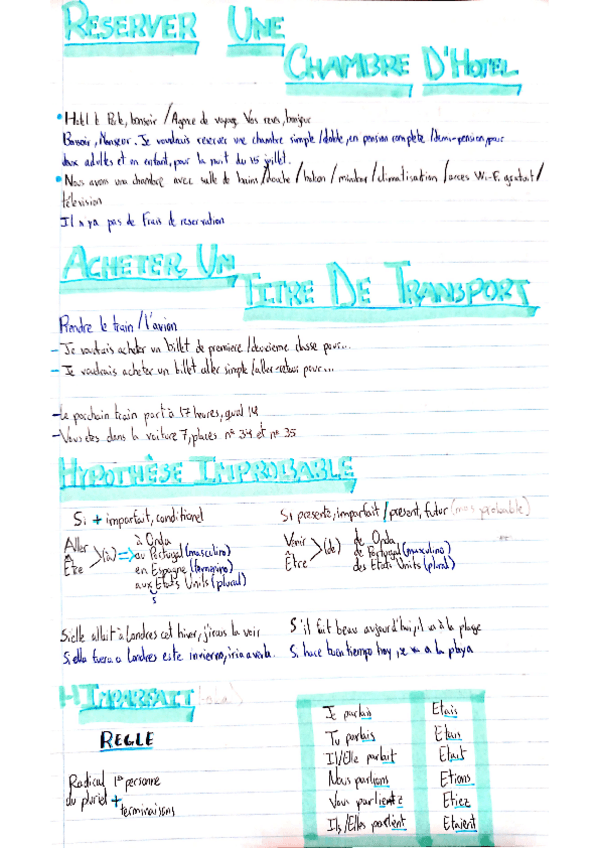 RESERVER UNE
CHAMBRE D'HOTEL
Hotel le Pole, bonsoir / Agence de voyage Vos reves, bonjour
Bonsoir, Monseur. Je voudrais reserver une chambre simple / doble, en pension complete / demi-pension, pour
deux adultes et en enfant, pour la nuit du 15 juillet.
Nous avons una chambre avec salle de bains / douche / balcon / minibar / climatisation / acces Wi-Fi gratuit /
télévision
Il n'ya pas de frais de reservation
ACHETER UN
TITRE DE TRANSPORT
Prendre le train / l'avion
- Je voudrais acheter un billet de premiere / deuxieme classe pour...
- Je voudrais acheter un billet aller simple / aller-retour pour...
- Le prochain train part à 17 heures, quai 14
- Vous etes dans la voiture 7, places nº 34 et nº 35
HYPOTHÈSE IMPROBABLE
Si + imparfait, conditionel
Si presente, imparfait / present, futur (mas probable)
Aller
Être
(à)
à Onda
au Portugal (masculino)
en Espagne (femenino)
aux Etats Units (plural)
s
Venir
Être
(de)
de Onda
de Portugal (masculino)
des Etats Units (plural)
Si elle allait à Londres cet hiver, j'irais la voir
Si ella fuera a Londres este invierno, iria a verla.
S'il fait beau aujourd'hui, il va à la plage
Si hace buen tiempo hoy, se va a la playa
IMPARFAIT
REGLE
Radical 1ª personne
du pluriel +
terminaisons
Je parlais Etais
Tu parlais Etais
Il/Elle parlait Etait
Nous parlions Etions
Vous parlientz Etiez
Ils/Elles parlient Etaient